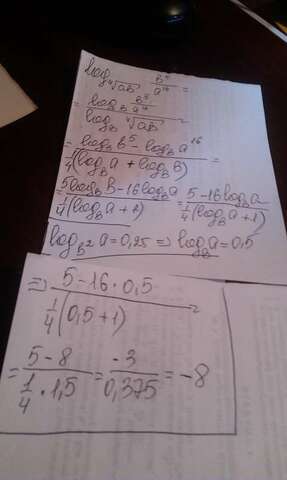 log_{⁴√ab} b⁵/a¹⁶ =
= log_b b⁵/a¹⁶ / log_b ⁴√ab
= (log_b b⁵ - log_b a¹⁶) / (1/4 (log_b a + log_b b)) =
= (5log_b b - 16log_b a) / (1/4 (log_b a + 1)) = (5 - 16log_b a) / (1/4 (log_b a + 1))
log_{b²} a = 0,25 => log_b a = 0,5
=> (5 - 16 · 0,5) / (1/4 (0,5 + 1))
= (5 - 8) / (1/4 · 1,5) = -3 / 0,375 = -8